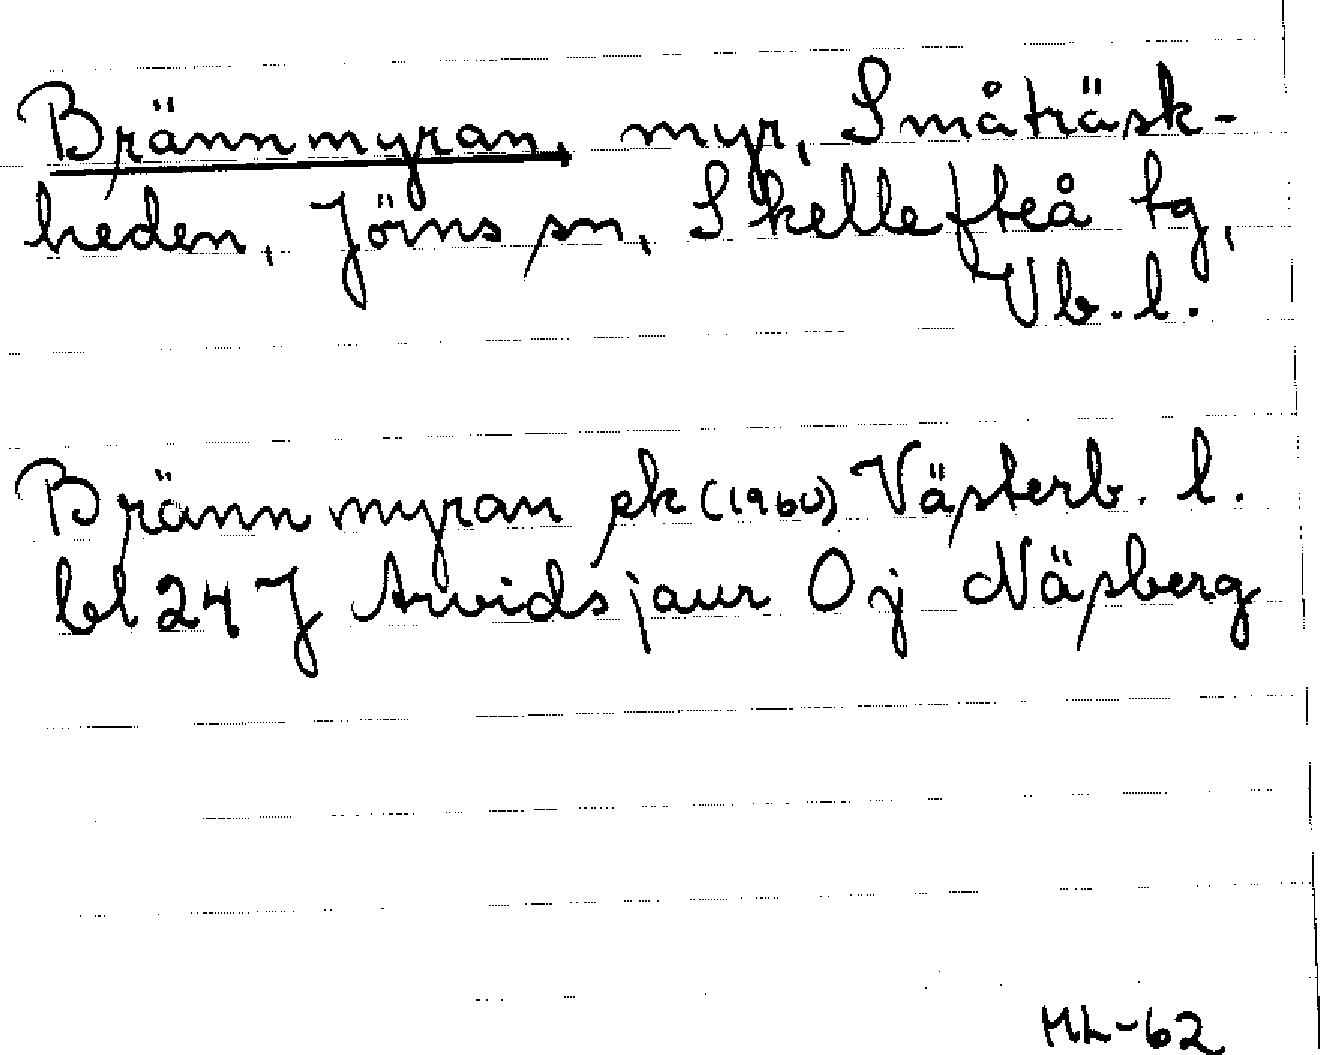 Brännmyran, myr, Småträsk-
heden, Jörns sn, Skellefteå tg,
Vb. l.
Brännmyran ek (1960) Västerb. l.
bl 24 J Arvidsjaur Oj Näsberg
ML-62